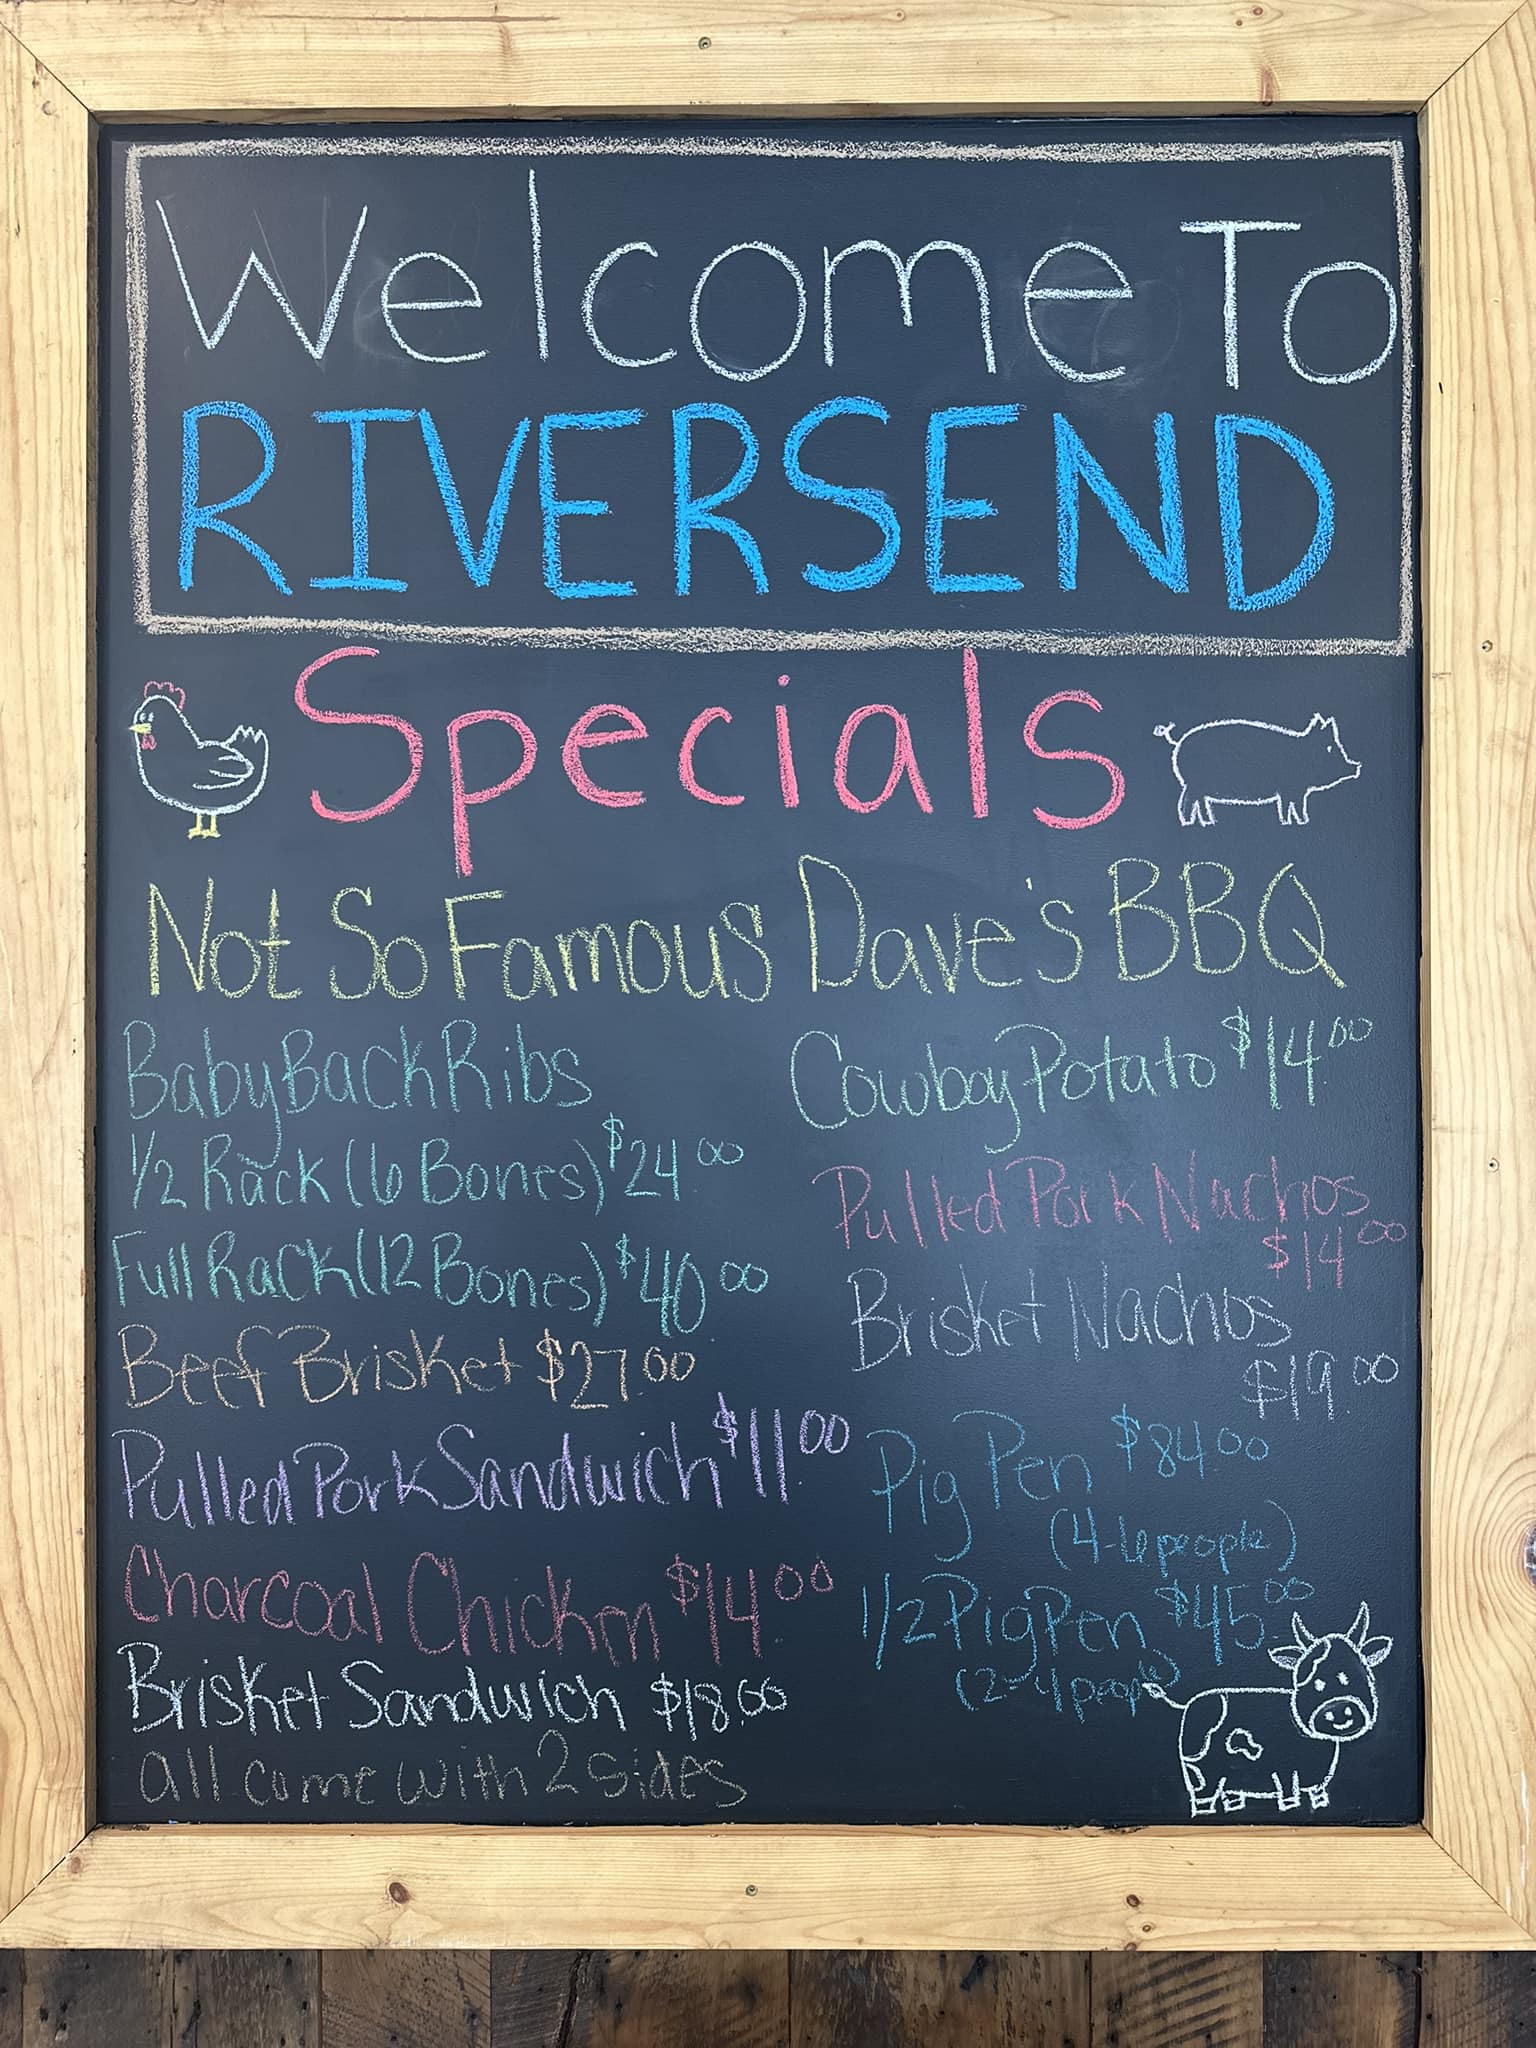 Welcome To
RIVERSEND
Specials
Not So Famous Dave's BBQ
Baby Back Ribs
1/2 Rack (6 Bones) $24.00
Full Rack (12 Bones) $40.00
Beef Brisket $27.00
Pulled Pork Sandwich $11.00
Charcoal Chicken $14.00
Brisket Sandwich $18.00
all come with 2 sides
Cowboy Potato $14.00
Pulled Pork Nachos
$14.00
Brisket Nachos
$19.00
Pig Pen $84.00
(4-6 people)
1/2 Pig Pen $45.00
(2-4 people)